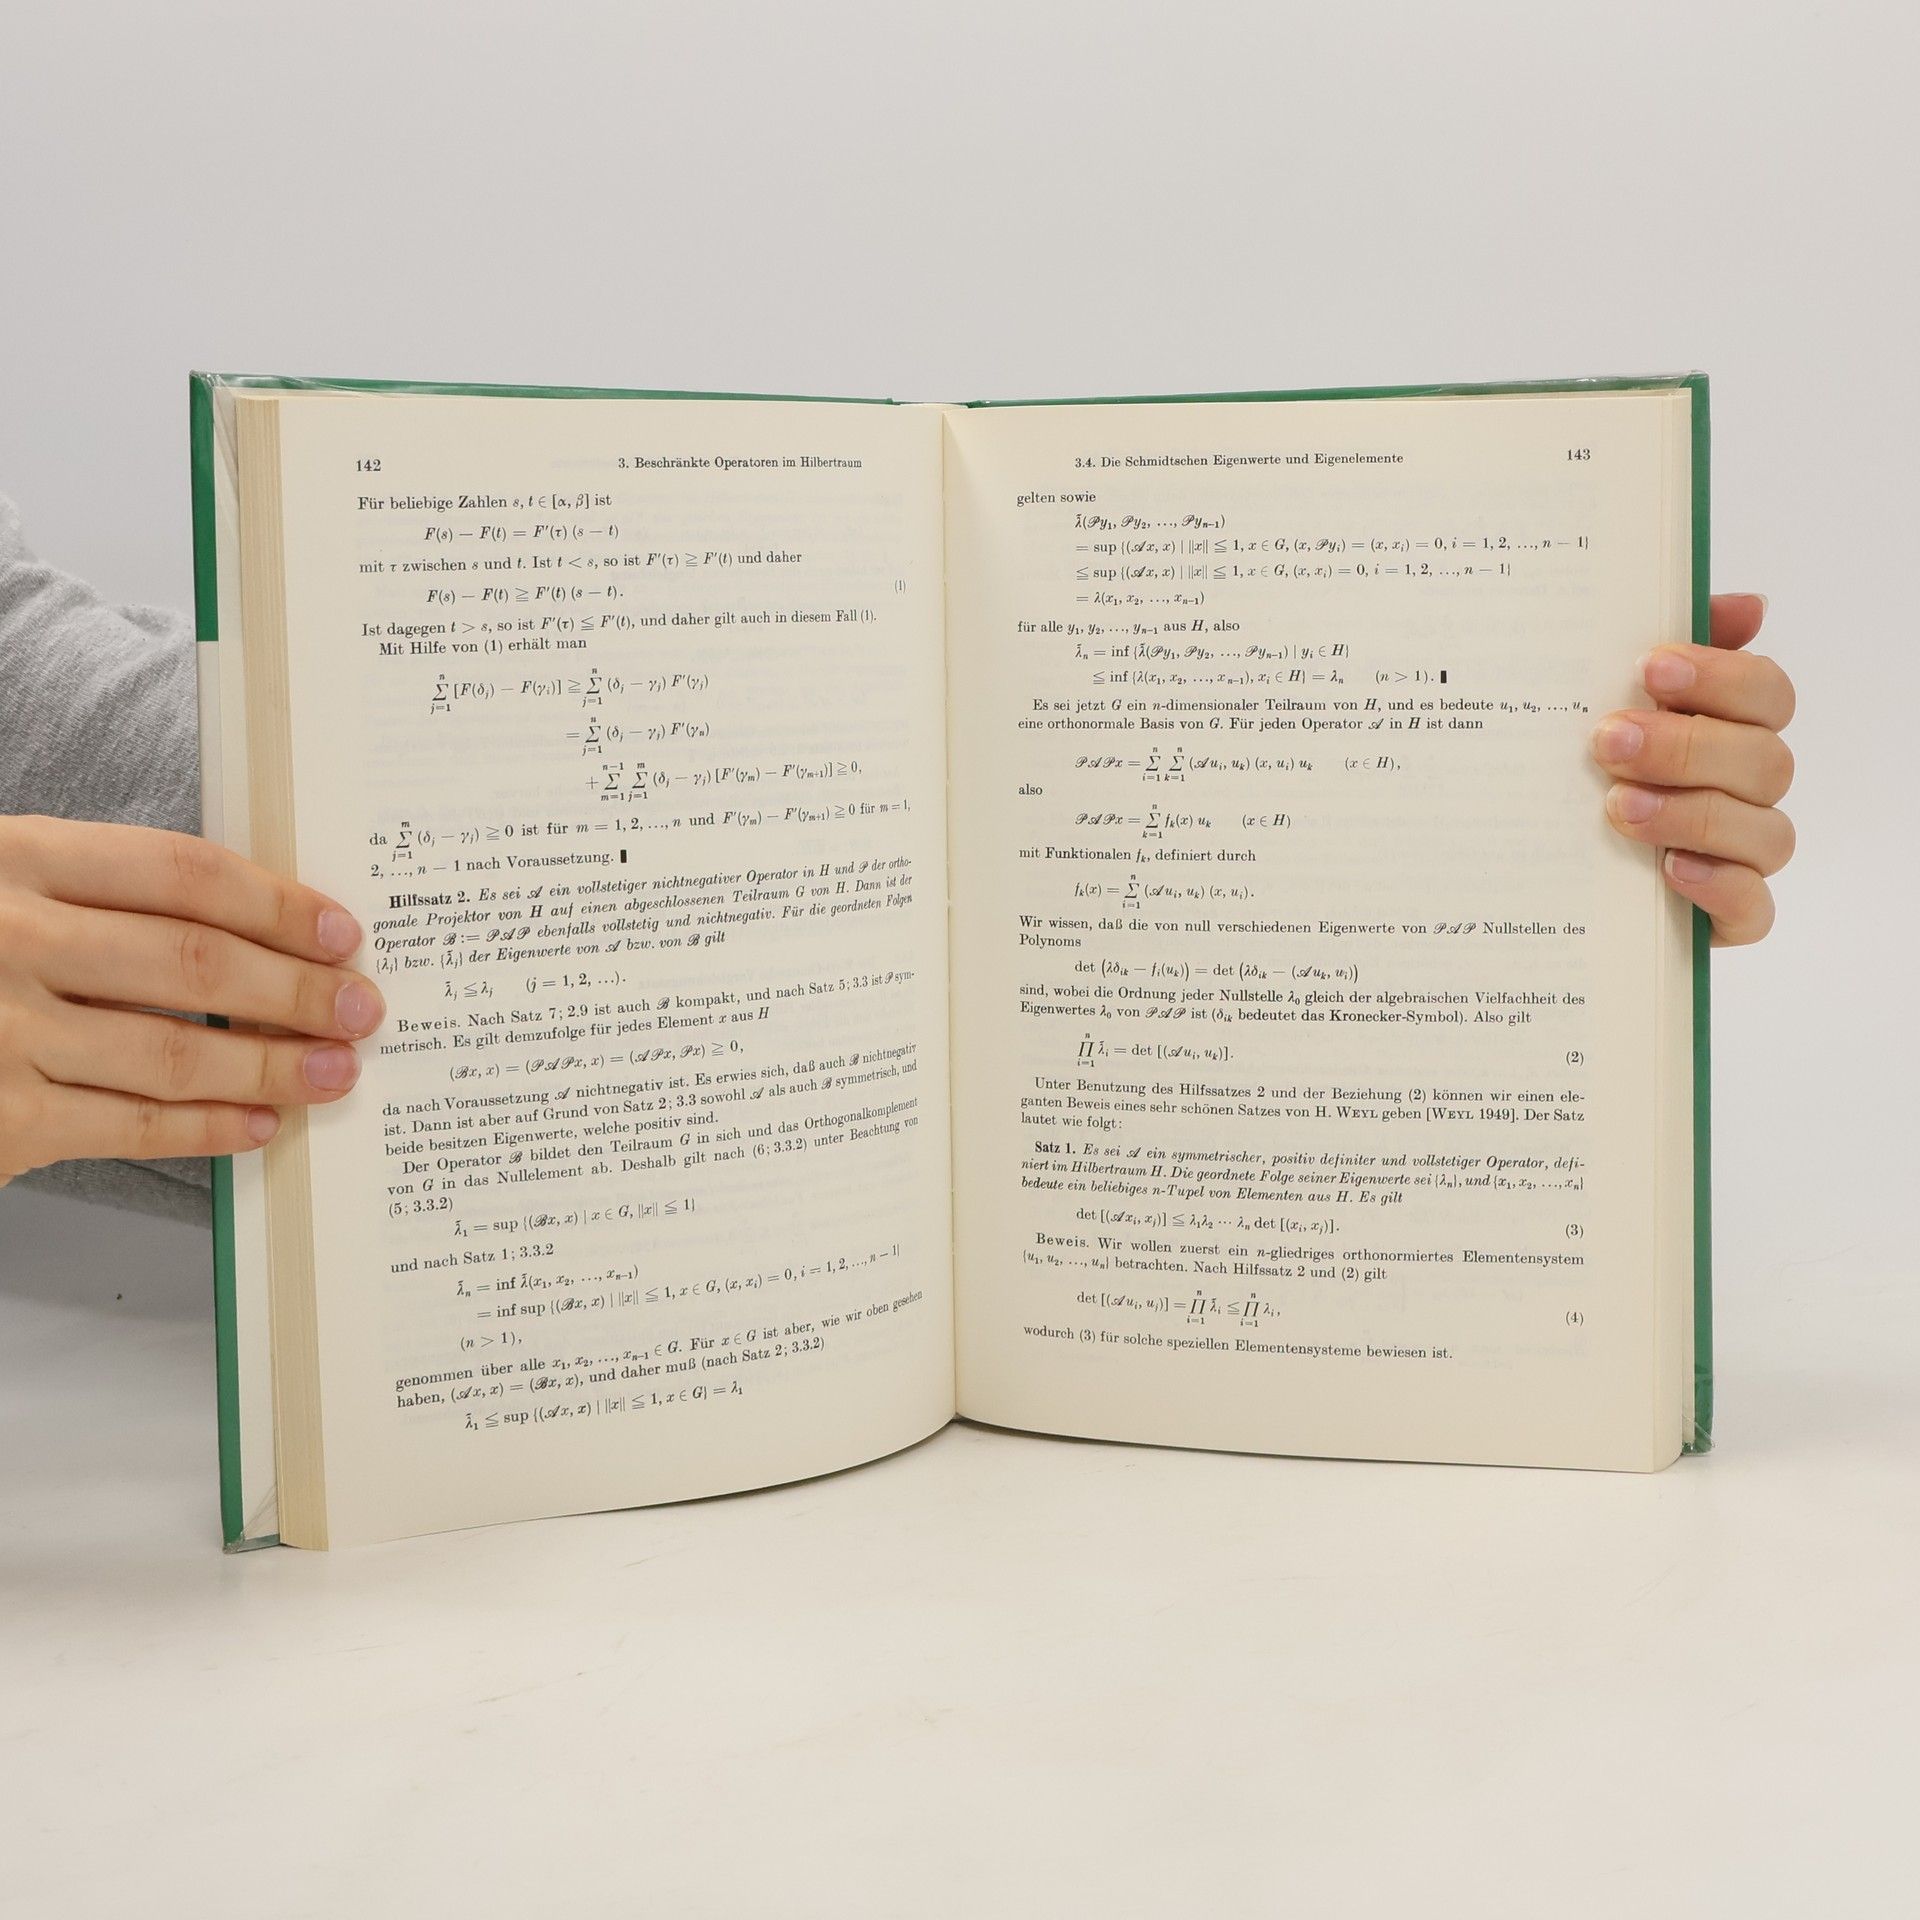 142 3. Beschränkte Operatoren im Hilbertraum
Für beliebige Zahlen s, t ∈ [α, β] ist
F(s) − F(t) = F′(τ) (s − t)
mit τ zwischen s und t. Ist t < s, so ist F′(τ) ≧ F′(t) und daher
F(s) − F(t) ≧ F′(t) (s − t). (1)
Ist dagegen t > s, so ist F′(τ) ≦ F′(t), und daher gilt auch in diesem Fall (1).
Mit Hilfe von (1) erhält man
∑_{j=1}^{n} [F(δ_j) − F(γ_i)] ≧ ∑_{j=1}^{n} (δ_j − γ_j) F′(γ_j)
= ∑_{j=1}^{n} (δ_j − γ_j) F′(γ_n)
+ ∑_{m=1}^{n−1} ∑_{j=1}^{m} (δ_j − γ_j) [F′(γ_m) − F′(γ_{m+1})] ≧ 0,
da ∑_{j=1}^{m} (δ_j − γ_j) ≧ 0 ist für m = 1, 2, ..., n und F′(γ_m) − F′(γ_{m+1}) ≧ 0 für m = 1,
2, ..., n − 1 nach Voraussetzung. ▮
Hilfssatz 2. Es sei 𝒜 ein vollstetiger nichtnegativer Operator in H und 𝒫 der ortho-
gonale Projektor von H auf einen abgeschlossenen Teilraum G von H. Dann ist der
Operator ℬ := 𝒫𝒜𝒫 ebenfalls vollstetig und nichtnegativ. Für die geordneten Folgen
{λ_j} bzw. {λ̃_j} der Eigenwerte von 𝒜 bzw. von ℬ gilt
λ̃_j ≦ λ_j (j = 1, 2, ...).
Beweis. Nach Satz 7; 2.9 ist auch ℬ kompakt, und nach Satz 5; 3.3 ist 𝒫 sym-
metrisch. Es gilt demzufolge für jedes Element x aus H
(ℬx, x) = (𝒫𝒜𝒫x, x) = (𝒜𝒫x, 𝒫x) ≧ 0,
da nach Voraussetzung 𝒜 nichtnegativ ist. Es erwies sich, daß auch ℬ nichtnegativ
ist. Dann ist aber auf Grund von Satz 2; 3.3 sowohl 𝒜 als auch ℬ symmetrisch, und
beide besitzen Eigenwerte, welche positiv sind.
Der Operator ℬ bildet den Teilraum G in sich und das Orthogonalkomplement
von G in das Nullelement ab. Deshalb gilt nach (6; 3.3.2) unter Beachtung von
(5; 3.3.2)
λ̃_1 = sup {(ℬx, x) | x ∈ G, ||x|| ≦ 1}
und nach Satz 1; 3.3.2
λ̃_n = inf λ̃(x_1, x_2, ..., x_{n−1})
= inf sup {(ℬx, x) | ||x|| ≦ 1, x ∈ G, (x, x_i) = 0, i = 1, 2, ..., n − 1}
(n > 1),
genommen über alle x_1, x_2, ..., x_{n−1} ∈ G. Für x ∈ G ist aber, wie wir oben gesehen
haben, (𝒜x, x) = (ℬx, x), und daher muß (nach Satz 2; 3.3.2)
λ̃_1 ≦ sup {(𝒜x, x) | ||x|| ≦ 1, x ∈ G} = λ_1
3.4. Die Schmidtschen Eigenwerte und Eigenelemente 143
gelten sowie
λ̃(𝒫y_1, 𝒫y_2, ..., 𝒫y_{n−1})
= sup {(𝒜x, x) | ||x|| ≦ 1, x ∈ G, (x, 𝒫y_i) = (x, x_i) = 0, i = 1, 2, ..., n − 1}
≦ sup {(𝒜x, x) | ||x|| ≦ 1, x ∈ G, (x, x_i) = 0, i = 1, 2, ..., n − 1}
= λ(x_1, x_2, ..., x_{n−1})
für alle y_1, y_2, ..., y_{n−1} aus H, also
λ̃_n = inf {λ̃(𝒫y_1, 𝒫y_2, ..., 𝒫y_{n−1}) | y_i ∈ H}
≦ inf {λ(x_1, x_2, ..., x_{n−1}), x_i ∈ H} = λ_n (n > 1). ▮
Es sei jetzt G ein n-dimensionaler Teilraum von H, und es bedeute u_1, u_2, ..., u_n
eine orthonormale Basis von G. Für jeden Operator 𝒜 in H ist dann
𝒫𝒜𝒫x = ∑_{i=1}^{n} ∑_{k=1}^{n} (𝒜u_i, u_k) (x, u_i) u_k (x ∈ H),
also
𝒫𝒜𝒫x = ∑_{k=1}^{n} f_k(x) u_k (x ∈ H)
mit Funktionalen f_k, definiert durch
f_k(x) = ∑_{i=1}^{n} (𝒜u_i, u_k) (x, u_i).
Wir wissen, daß die von null verschiedenen Eigenwerte von 𝒫𝒜𝒫 Nullstellen des
Polynoms
det (λδ_{ik} − f_i(u_k)) = det (λδ_{ik} − (𝒜u_k, u_i))
sind, wobei die Ordnung jeder Nullstelle λ_0 gleich der algebraischen Vielfachheit des
Eigenwertes λ_0 von 𝒫𝒜𝒫 ist (δ_{ik} bedeutet das Kronecker-Symbol). Also gilt
∏_{i=1}^{n} λ̃_i = det [(𝒜u_i, u_k)]. (2)
Unter Benutzung des Hilfssatzes 2 und der Beziehung (2) können wir einen ele-
ganten Beweis eines sehr schönen Satzes von H. WEYL geben [WEYL 1949]. Der Satz
lautet wie folgt:
Satz 1. Es sei 𝒜 ein symmetrischer, positiv definiter und vollstetiger Operator, defi-
niert im Hilbertraum H. Die geordnete Folge seiner Eigenwerte sei {λ_n}, und {x_1, x_2, ..., x_n}
bedeute ein beliebiges n-Tupel von Elementen aus H. Es gilt
det [(𝒜x_i, x_j)] ≦ λ_1λ_2 ··· λ_n det [(x_i, x_j)]. (3)
Beweis. Wir wollen zuerst ein n-gliedriges orthonormiertes Elementensystem
{u_1, u_2, ..., u_n} betrachten. Nach Hilfssatz 2 und (2) gilt
det [(𝒜u_i, u_j)] = ∏_{i=1}^{n} λ̃_i ≦ ∏_{i=1}^{n} λ_i, (4)
wodurch (3) für solche speziellen Elementensysteme bewiesen ist.